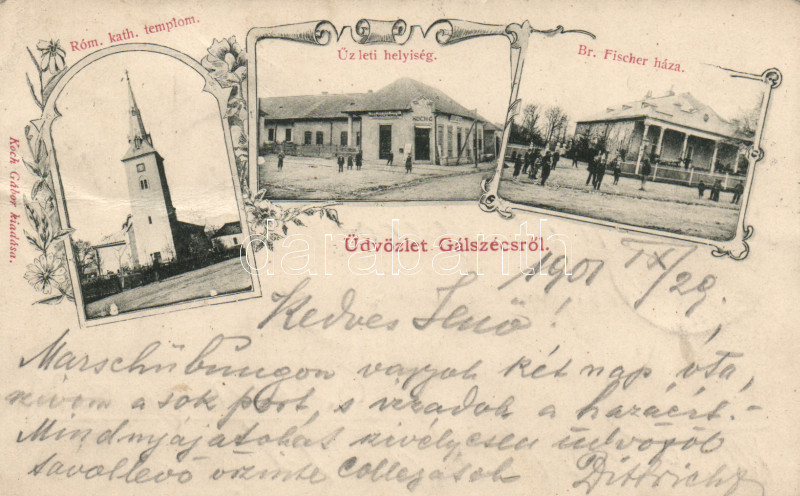 Róm. kath. templom.
Üzleti helyiség.
Br. Fischer háza.
KOCH G
Koch Gábor kiadása.
Üdvözlet Gálszécsről.
darabanth.com
1901 IX/29.
Kedves Jenő!
Marschübungon vagyok két nap óta,
szívom a sok port, s izzadok a hazáért.-
Mindnyájatokat szívélyesen üdvözöl
távollevő őszinte collegátok Dittrich